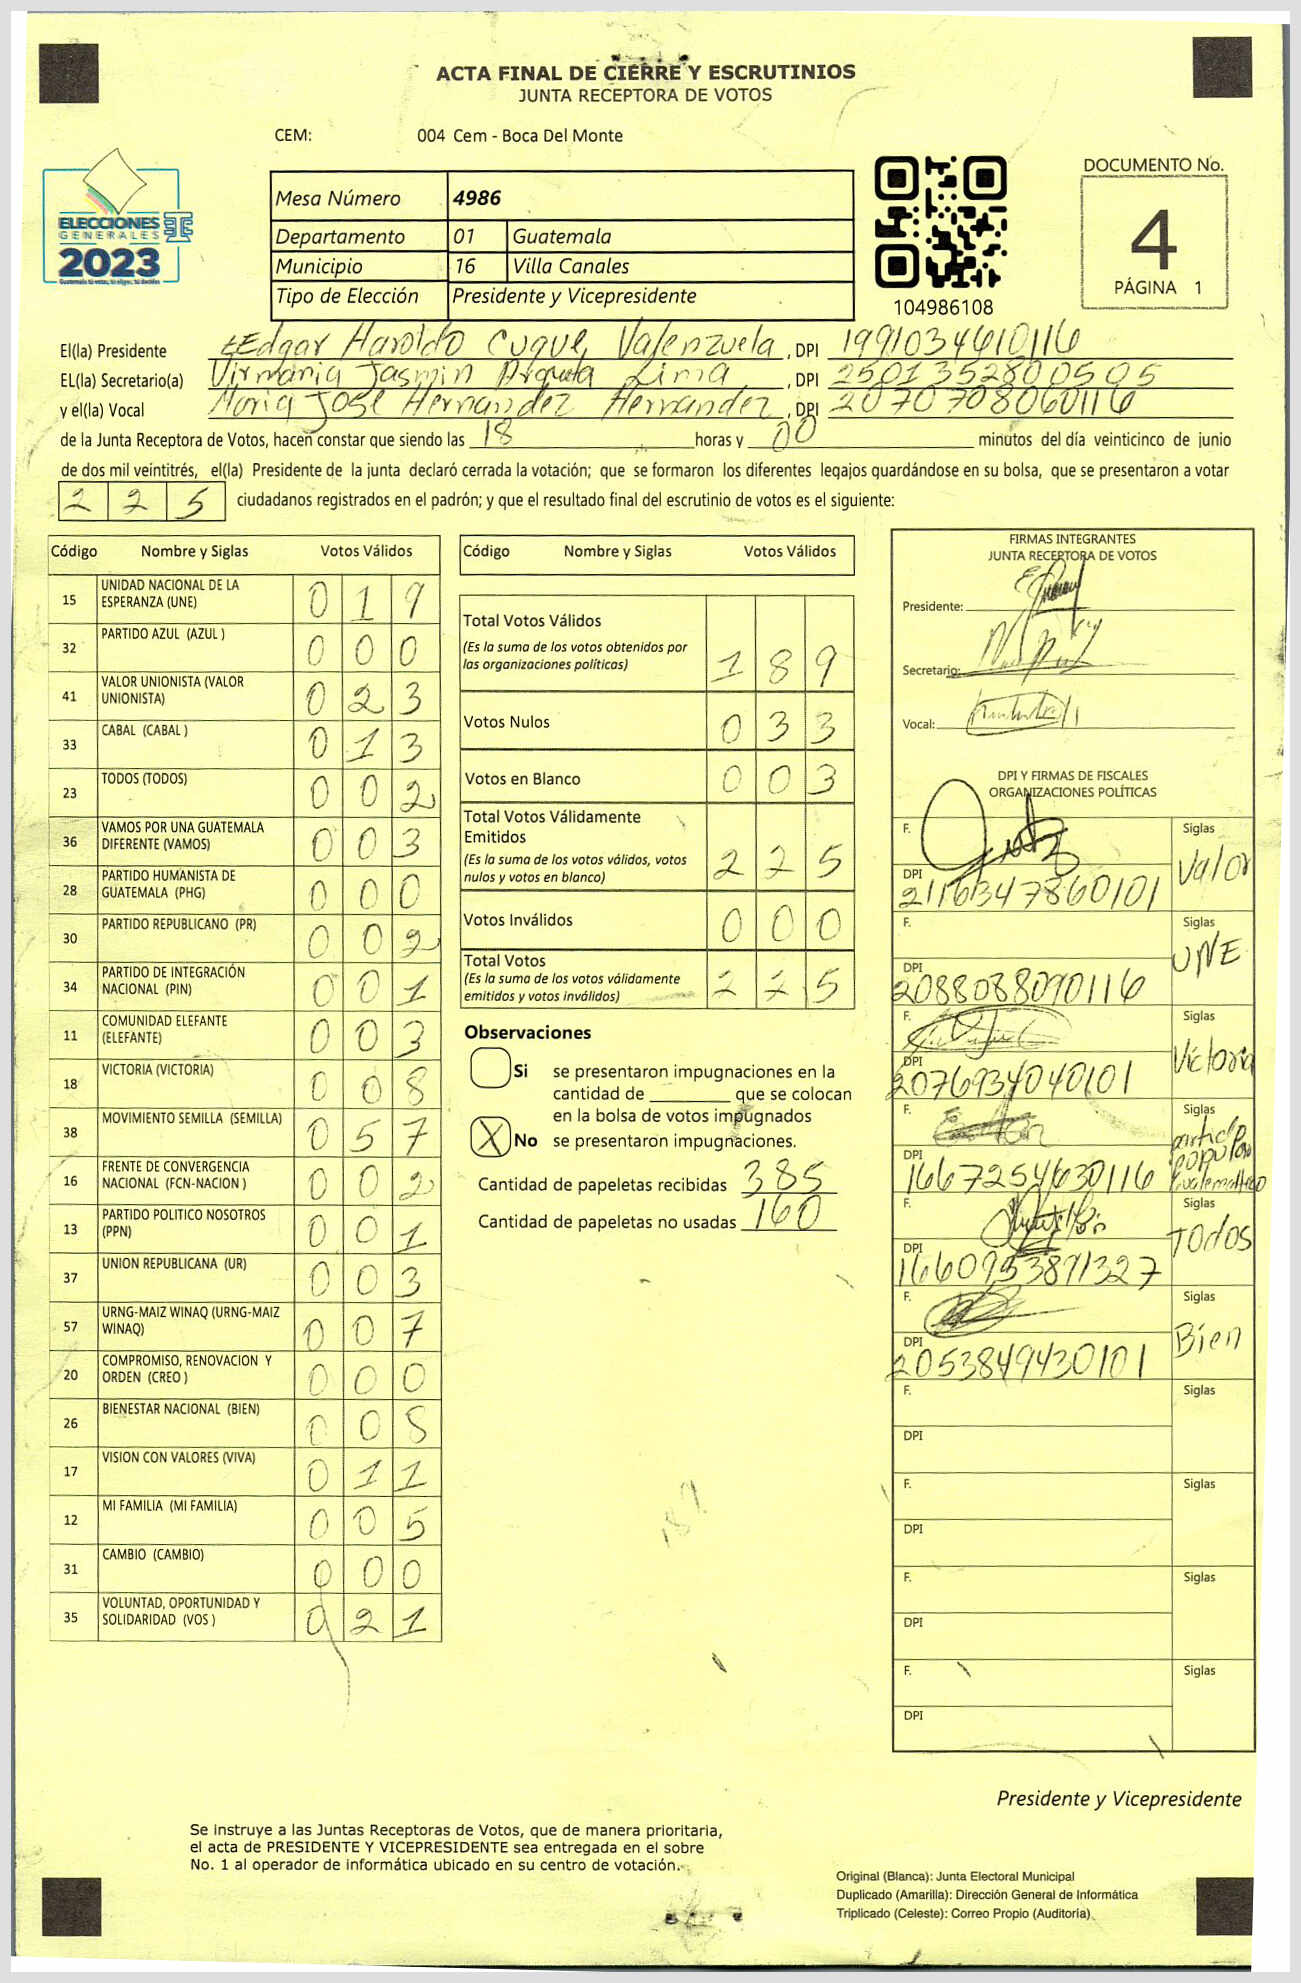 ACTA FINAL DE CIERRE Y ESCRUTINIOS
JUNTA RECEPTORA DE VOTOS
CEM: 004 Cem - Boca Del Monte
ELECCIONES
GENERALES
2023
Mesa Número 4986
Departamento 01 Guatemala
Municipio 16 Villa Canales
Tipo de Elección Presidente y Vicepresidente
104986108
DOCUMENTO No.
4
PÁGINA 1
El(la) Presidente Edgar Haroldo Cuque Valenzuela, DPI 1991034610116
EL(la) Secretario(a) Virmania Jasmin Lima, DPI 2501352800505
y el(la) Vocal Maria José Hernandez Hernandez, DPI 2070708060116
de la Junta Receptora de Votos, hacen constar que siendo las 18 horas y 00 minutos del día veinticinco de junio
de dos mil veintitrés, el(la) Presidente de la junta declaró cerrada la votación; que se formaron los diferentes legajos guardándose en su bolsa, que se presentaron a votar
225 ciudadanos registrados en el padrón; y que el resultado final del escrutinio de votos es el siguiente:
Código Nombre y Siglas Votos Válidos
15 UNIDAD NACIONAL DE LA ESPERANZA (UNE) 019
32 PARTIDO AZUL (AZUL ) 000
41 VALOR UNIONISTA (VALOR UNIONISTA) 023
33 CABAL (CABAL ) 013
23 TODOS (TODOS) 002
36 VAMOS POR UNA GUATEMALA DIFERENTE (VAMOS) 003
28 PARTIDO HUMANISTA DE GUATEMALA (PHG) 000
30 PARTIDO REPUBLICANO (PR) 002
34 PARTIDO DE INTEGRACIÓN NACIONAL (PIN) 001
11 COMUNIDAD ELEFANTE (ELEFANTE) 003
18 VICTORIA (VICTORIA) 008
38 MOVIMIENTO SEMILLA (SEMILLA) 057
16 FRENTE DE CONVERGENCIA NACIONAL (FCN-NACION ) 002
13 PARTIDO POLITICO NOSOTROS (PPN) 001
37 UNION REPUBLICANA (UR) 003
57 URNG-MAIZ WINAQ (URNG-MAIZ WINAQ) 007
20 COMPROMISO, RENOVACION Y ORDEN (CREO ) 000
26 BIENESTAR NACIONAL (BIEN) 008
17 VISION CON VALORES (VIVA) 011
12 MI FAMILIA (MI FAMILIA) 005
31 CAMBIO (CAMBIO) 000
35 VOLUNTAD, OPORTUNIDAD Y SOLIDARIDAD (VOS ) 021
Código Nombre y Siglas Votos Válidos
Total Votos Válidos 189
(Es la suma de los votos obtenidos por
las organizaciones políticas)
Votos Nulos 033
Votos en Blanco 003
Total Votos Válidamente
Emitidos 225
(Es la suma de los votos válidos, votos
nulos y votos en blanco)
Votos Inválidos 000
Total Votos 225
(Es la suma de los votos válidamente
emitidos y votos inválidos)
Observaciones
Si se presentaron impugnaciones en la
cantidad de ________ que se colocan
en la bolsa de votos impugnados
X No se presentaron impugnaciones.
Cantidad de papeletas recibidas 385
Cantidad de papeletas no usadas 160
189
FIRMAS INTEGRANTES
JUNTA RECEPTORA DE VOTOS
Presidente:
Secretario:
Vocal:
DPI Y FIRMAS DE FISCALES
ORGANIZACIONES POLÍTICAS
F. Siglas Valor
DPI 2116347860101
F. Siglas UNE
DPI 2088088090116
F. Siglas Victoria
DPI 2076934040101
F. Siglas partido popular Guatemalteco
DPI 1667254630116
F. Siglas TOdOS
DPI 1660953891327
F. Siglas Bien
DPI 2053849430101
F. Siglas
DPI
F. Siglas
DPI
F. Siglas
DPI
F. Siglas
DPI
Presidente y Vicepresidente
Se instruye a las Juntas Receptoras de Votos, que de manera prioritaria,
el acta de PRESIDENTE Y VICEPRESIDENTE sea entregada en el sobre
No. 1 al operador de informática ubicado en su centro de votación.
Original (Blanca): Junta Electoral Municipal
Duplicado (Amarilla): Dirección General de Informática
Triplicado (Celeste): Correo Propio (Auditoría)